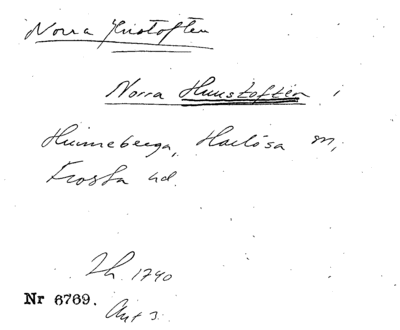 Norra Hustoften
Norra Huustoften i
Hunneberga, Harlösa sn,
Frosta hd.
Lh. 1740
Nr 6769.
Akt 3